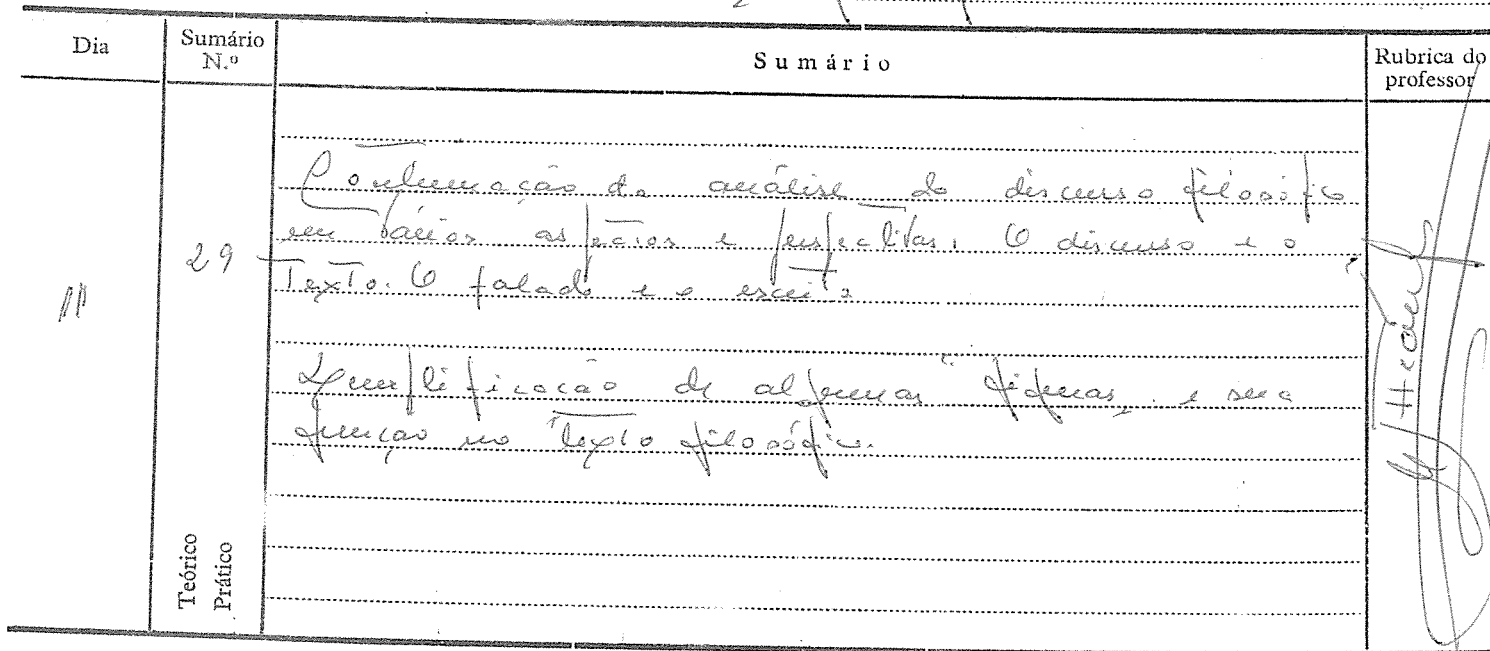 Dia
Sumário N.º
Sumário
Rubrica do professor
11
29
Teórico
Prático
Continuação da análise do discurso filosófico
em vários aspectos e perspectivas. O discurso e o
Texto. O falado e o escrito
Exemplificação de algumas "figuras" e sua
função no texto filosófico.